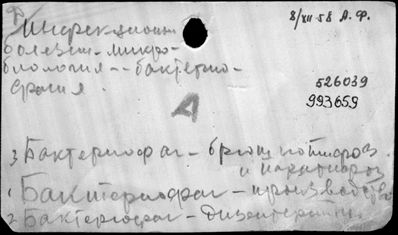 Инфекцион.
болезни - микро-
биология -- бактерио-
фагия.
8/XII-58 А. Ф.
526039
993659
А
3 Бактериофаг - брюшнотифоз.
и паратифоз
1 Бактериофаг - производство
2 Бактериофаг - дизентерийн.